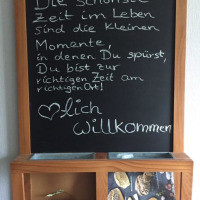 Die schönste
Zeit im Leben
sind die kleinen
Momente,
in denen Du spürst,
Du bist zur
richtigen Zeit am
richtigen Ort!
lich
willkommen